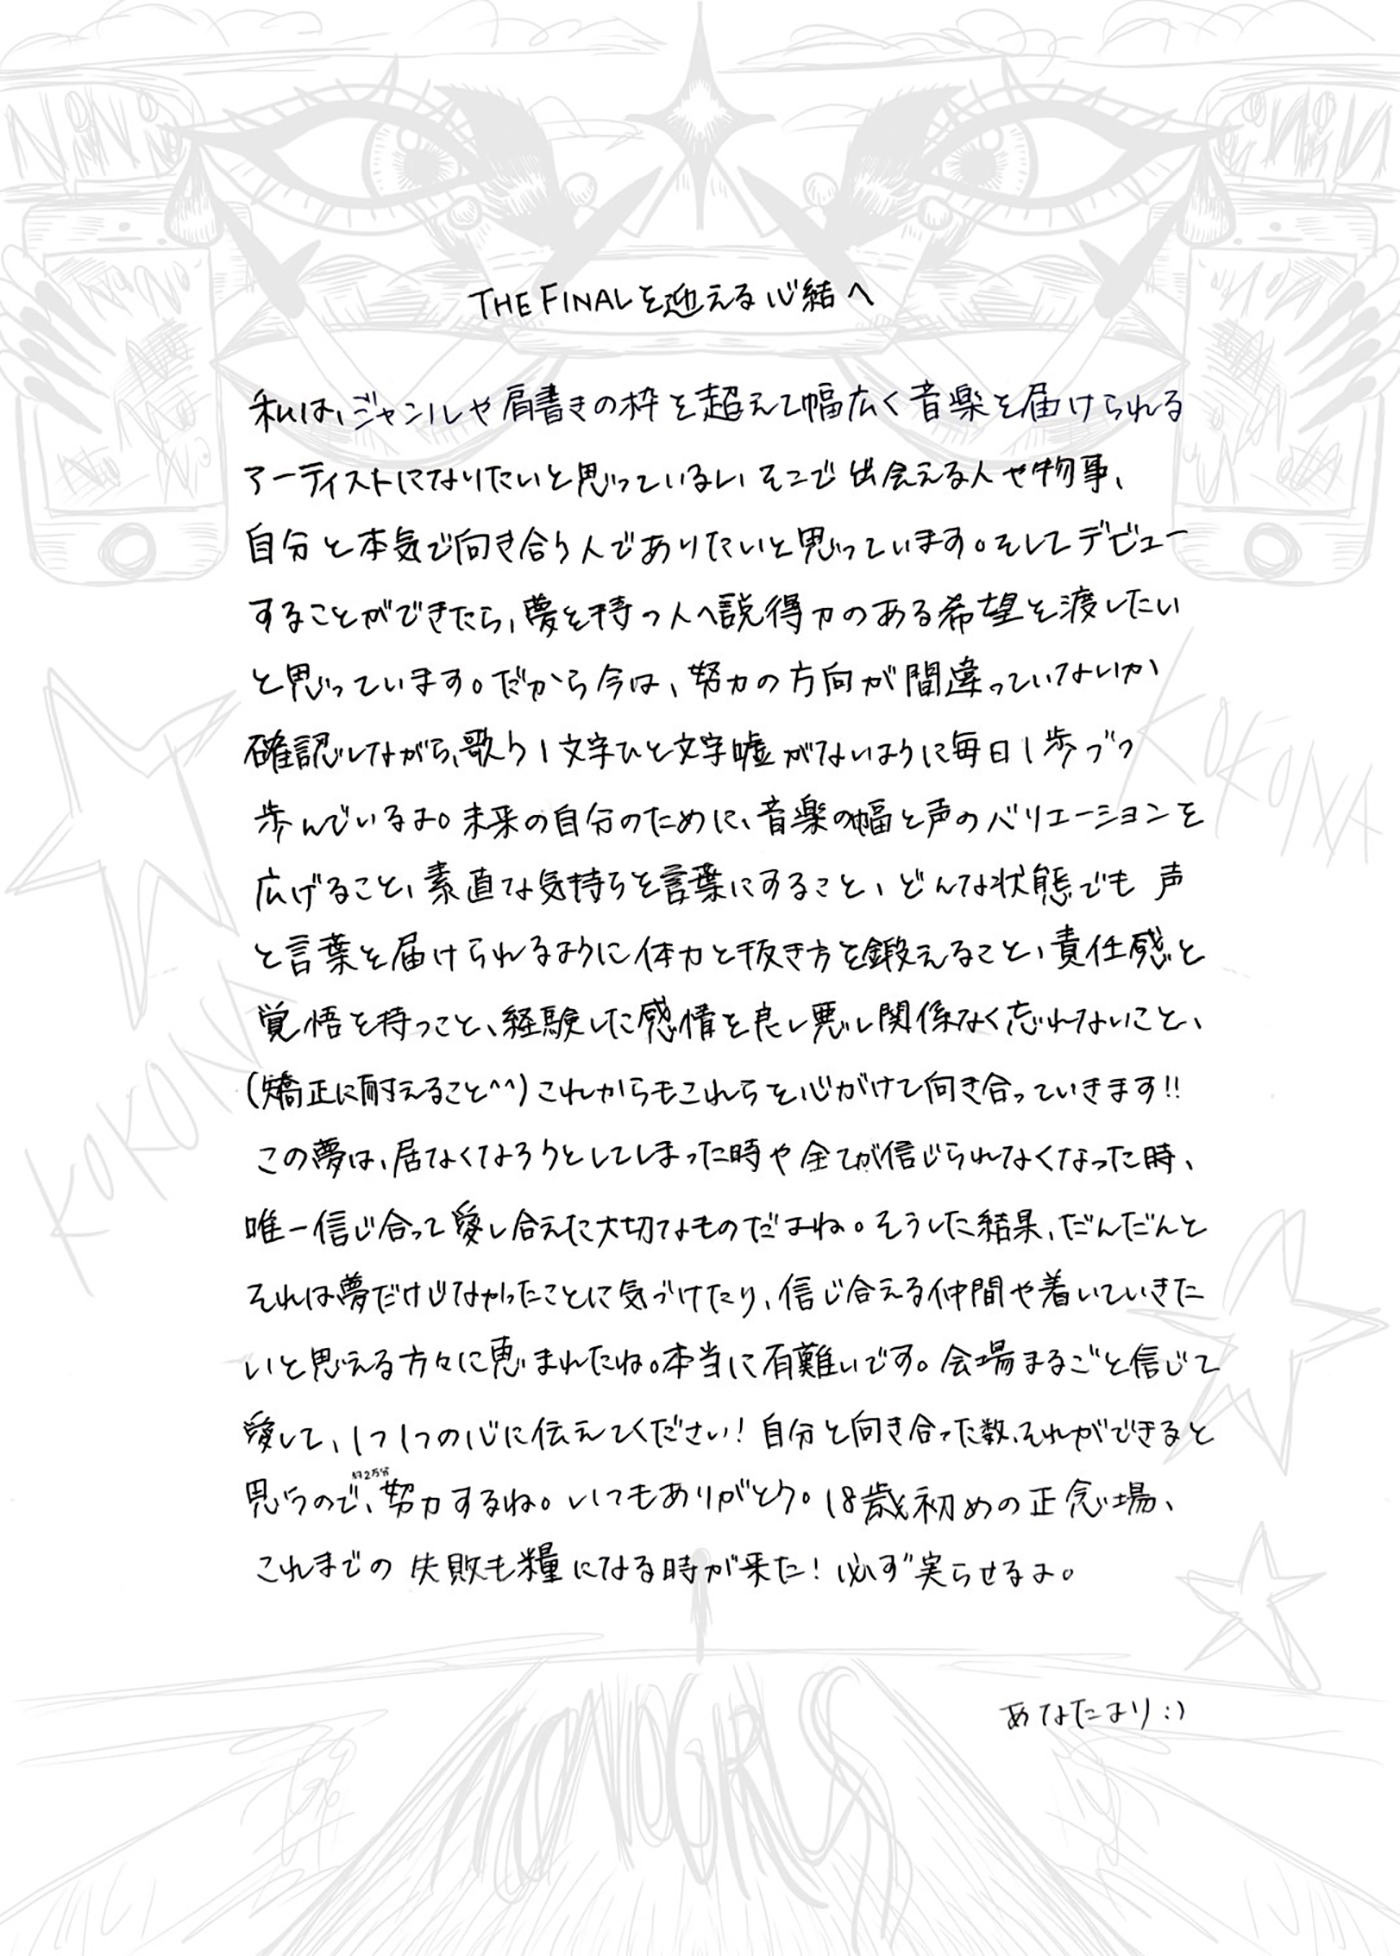 NO NO
NO NO
THE FINALを迎える心結へ
私は、ジャンルや肩書きの枠を超えて幅広く音楽を届けられる
アーティストになりたいと思っているし、そこで出会える人や物事、
自分と本気で向き合う人でありたいと思っています。そしてデビュー
することができたら、夢を持つ人へ説得力のある希望を渡したい
と思っています。だから今は、努力の方向が間違っていないか
確認しながら、歌う1文字ひと文字嘘がないように毎日1歩づつ
歩んでいるよ。未来の自分のために、音楽の幅と声のバリエーションを
広げること、素直な気持ちを言葉にすること、どんな状態でも 声
と言葉を届けられるように体力と抜き方を鍛えること、責任感と
覚悟を持つこと、経験した感情を良し悪し関係なく忘れないこと、
(矯正に耐えること^^)これからもこれらを心がけて向き合っていきます!!
この夢は、居なくなろうとしてしまった時や全てが信じられなくなった時、
唯一信じ合って愛し合えた大切なものだよね。そうした結果、だんだんと
それは夢だけじゃなかったことに気づけたり、信じ合える仲間や着いていきた
いと思える方々に恵まれたね。本当に有難いです。会場まるごと信じて
愛して、1つ1つの心に伝えてください!自分と向き合った数、それができると
思うので、努力するね。いつもありがとう。18歳初めの正念場、
これまでの失敗も糧になる時が来た!必ず実らせるよ。
あなたより:)
KOKONA
KOKONA
NO NO GIRLS